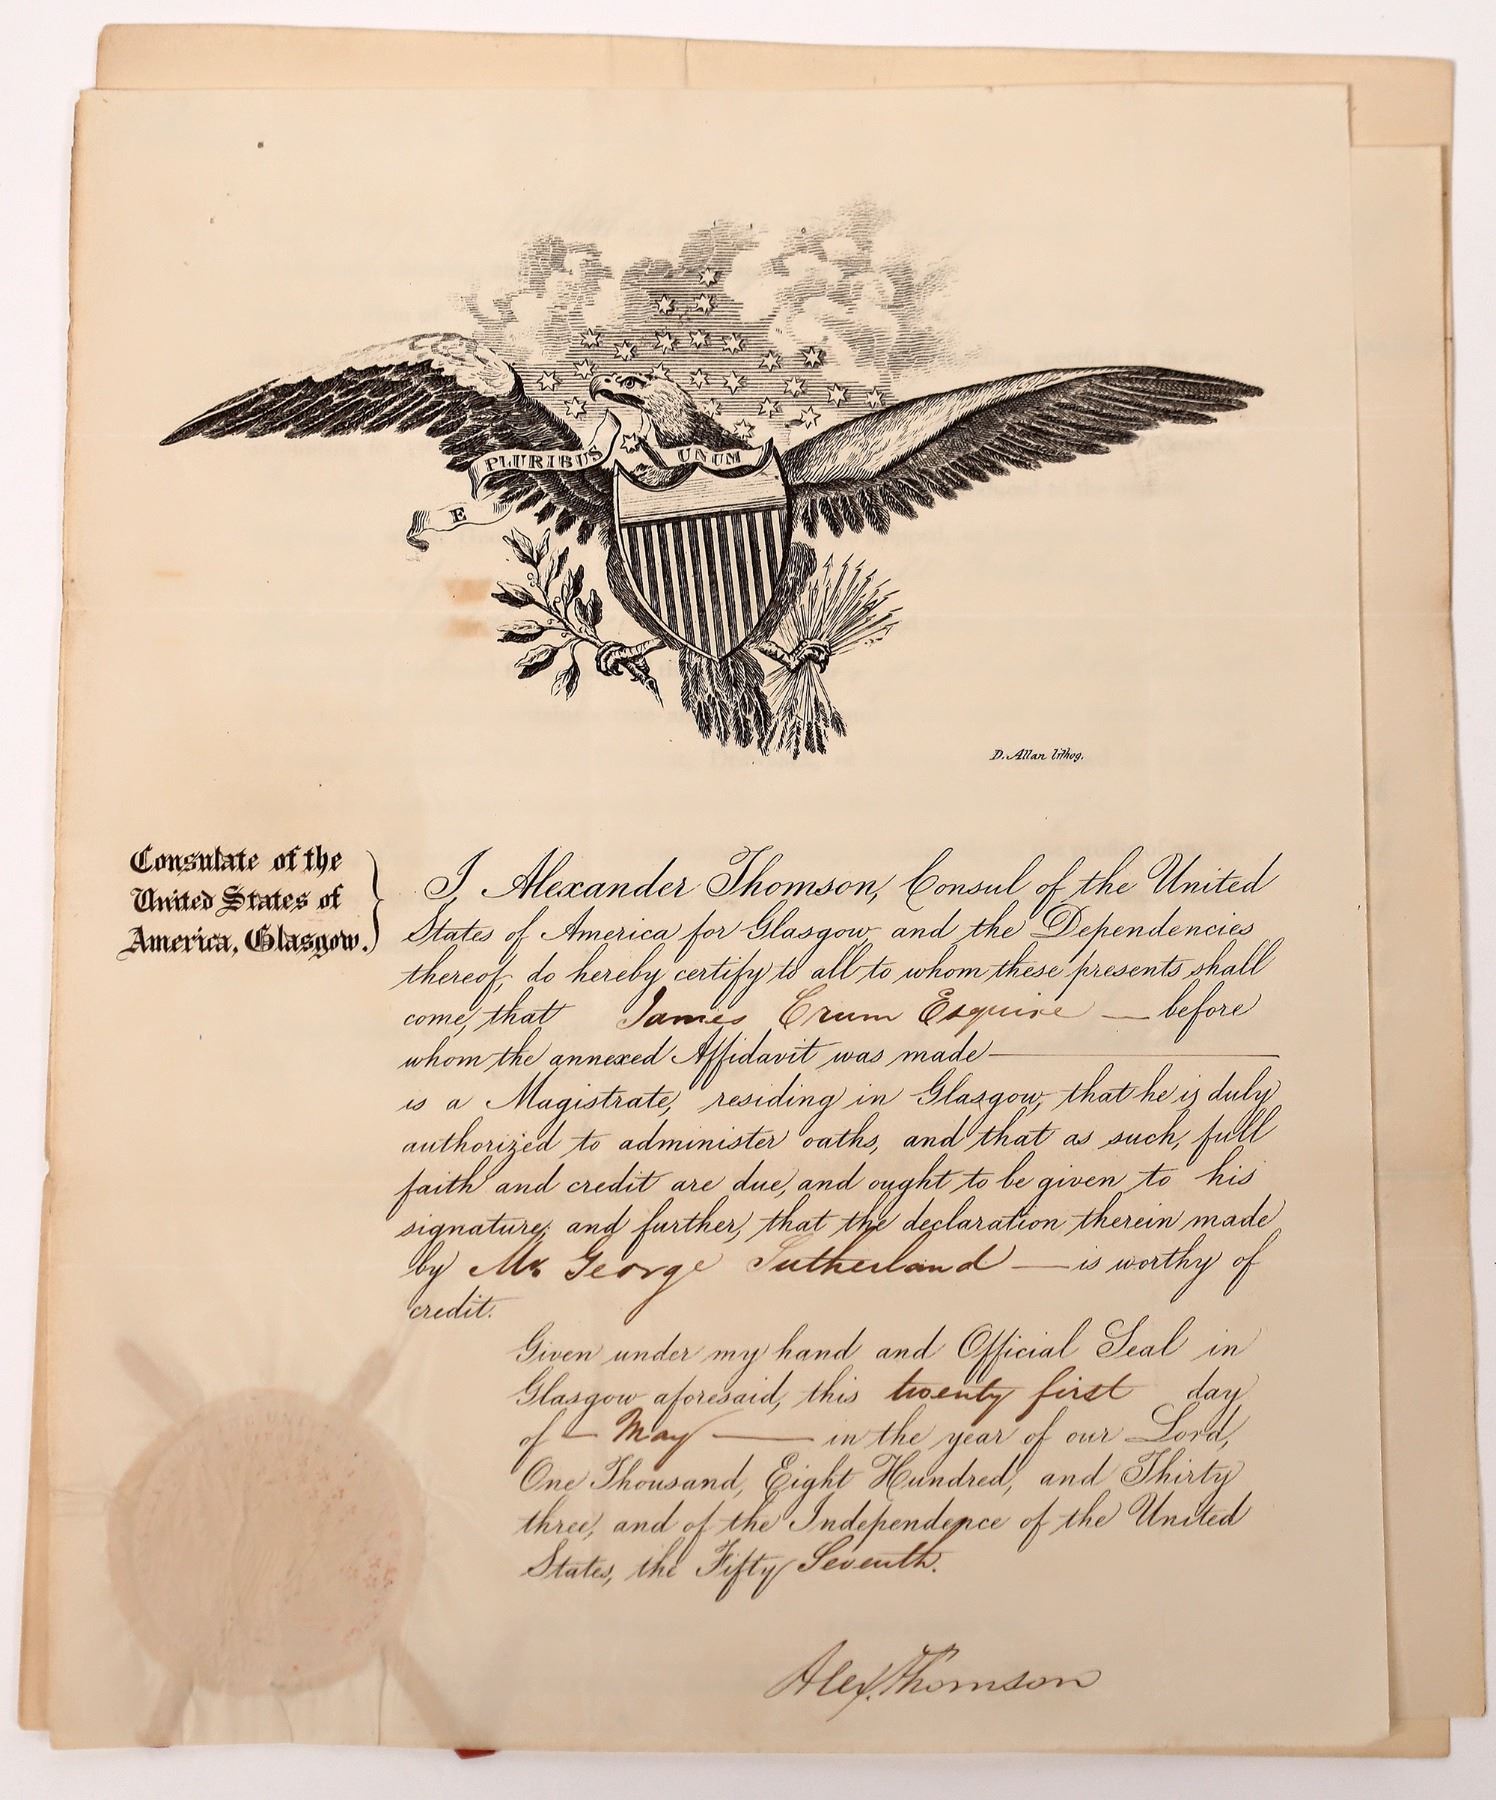 PLURIBUS UNUM
E
D. Allan lithog.
Consulate of the
United States of
America, Glasgow.
I, Alexander Thomson, Consul of the United
States of America for Glasgow, and the Dependencies
thereof, do hereby certify to all to whom these presents shall
come, that James Crum Esquire — before
whom the annexed Affidavit was made —
is a Magistrate, residing in Glasgow, that he is duly
authorized to administer oaths, and that as such, full
faith and credit are due, and ought to be given to his
signature; and further, that the declaration therein made
by Mr George Sutherland — is worthy of
credit.
Given under my hand and Official Seal in
Glasgow aforesaid, this twenty first day
of — May — in the year of our Lord,
One Thousand, Eight Hundred, and Thirty
three, and of the Independence of the United
States, the Fifty Seventh.
Alex. Thomson